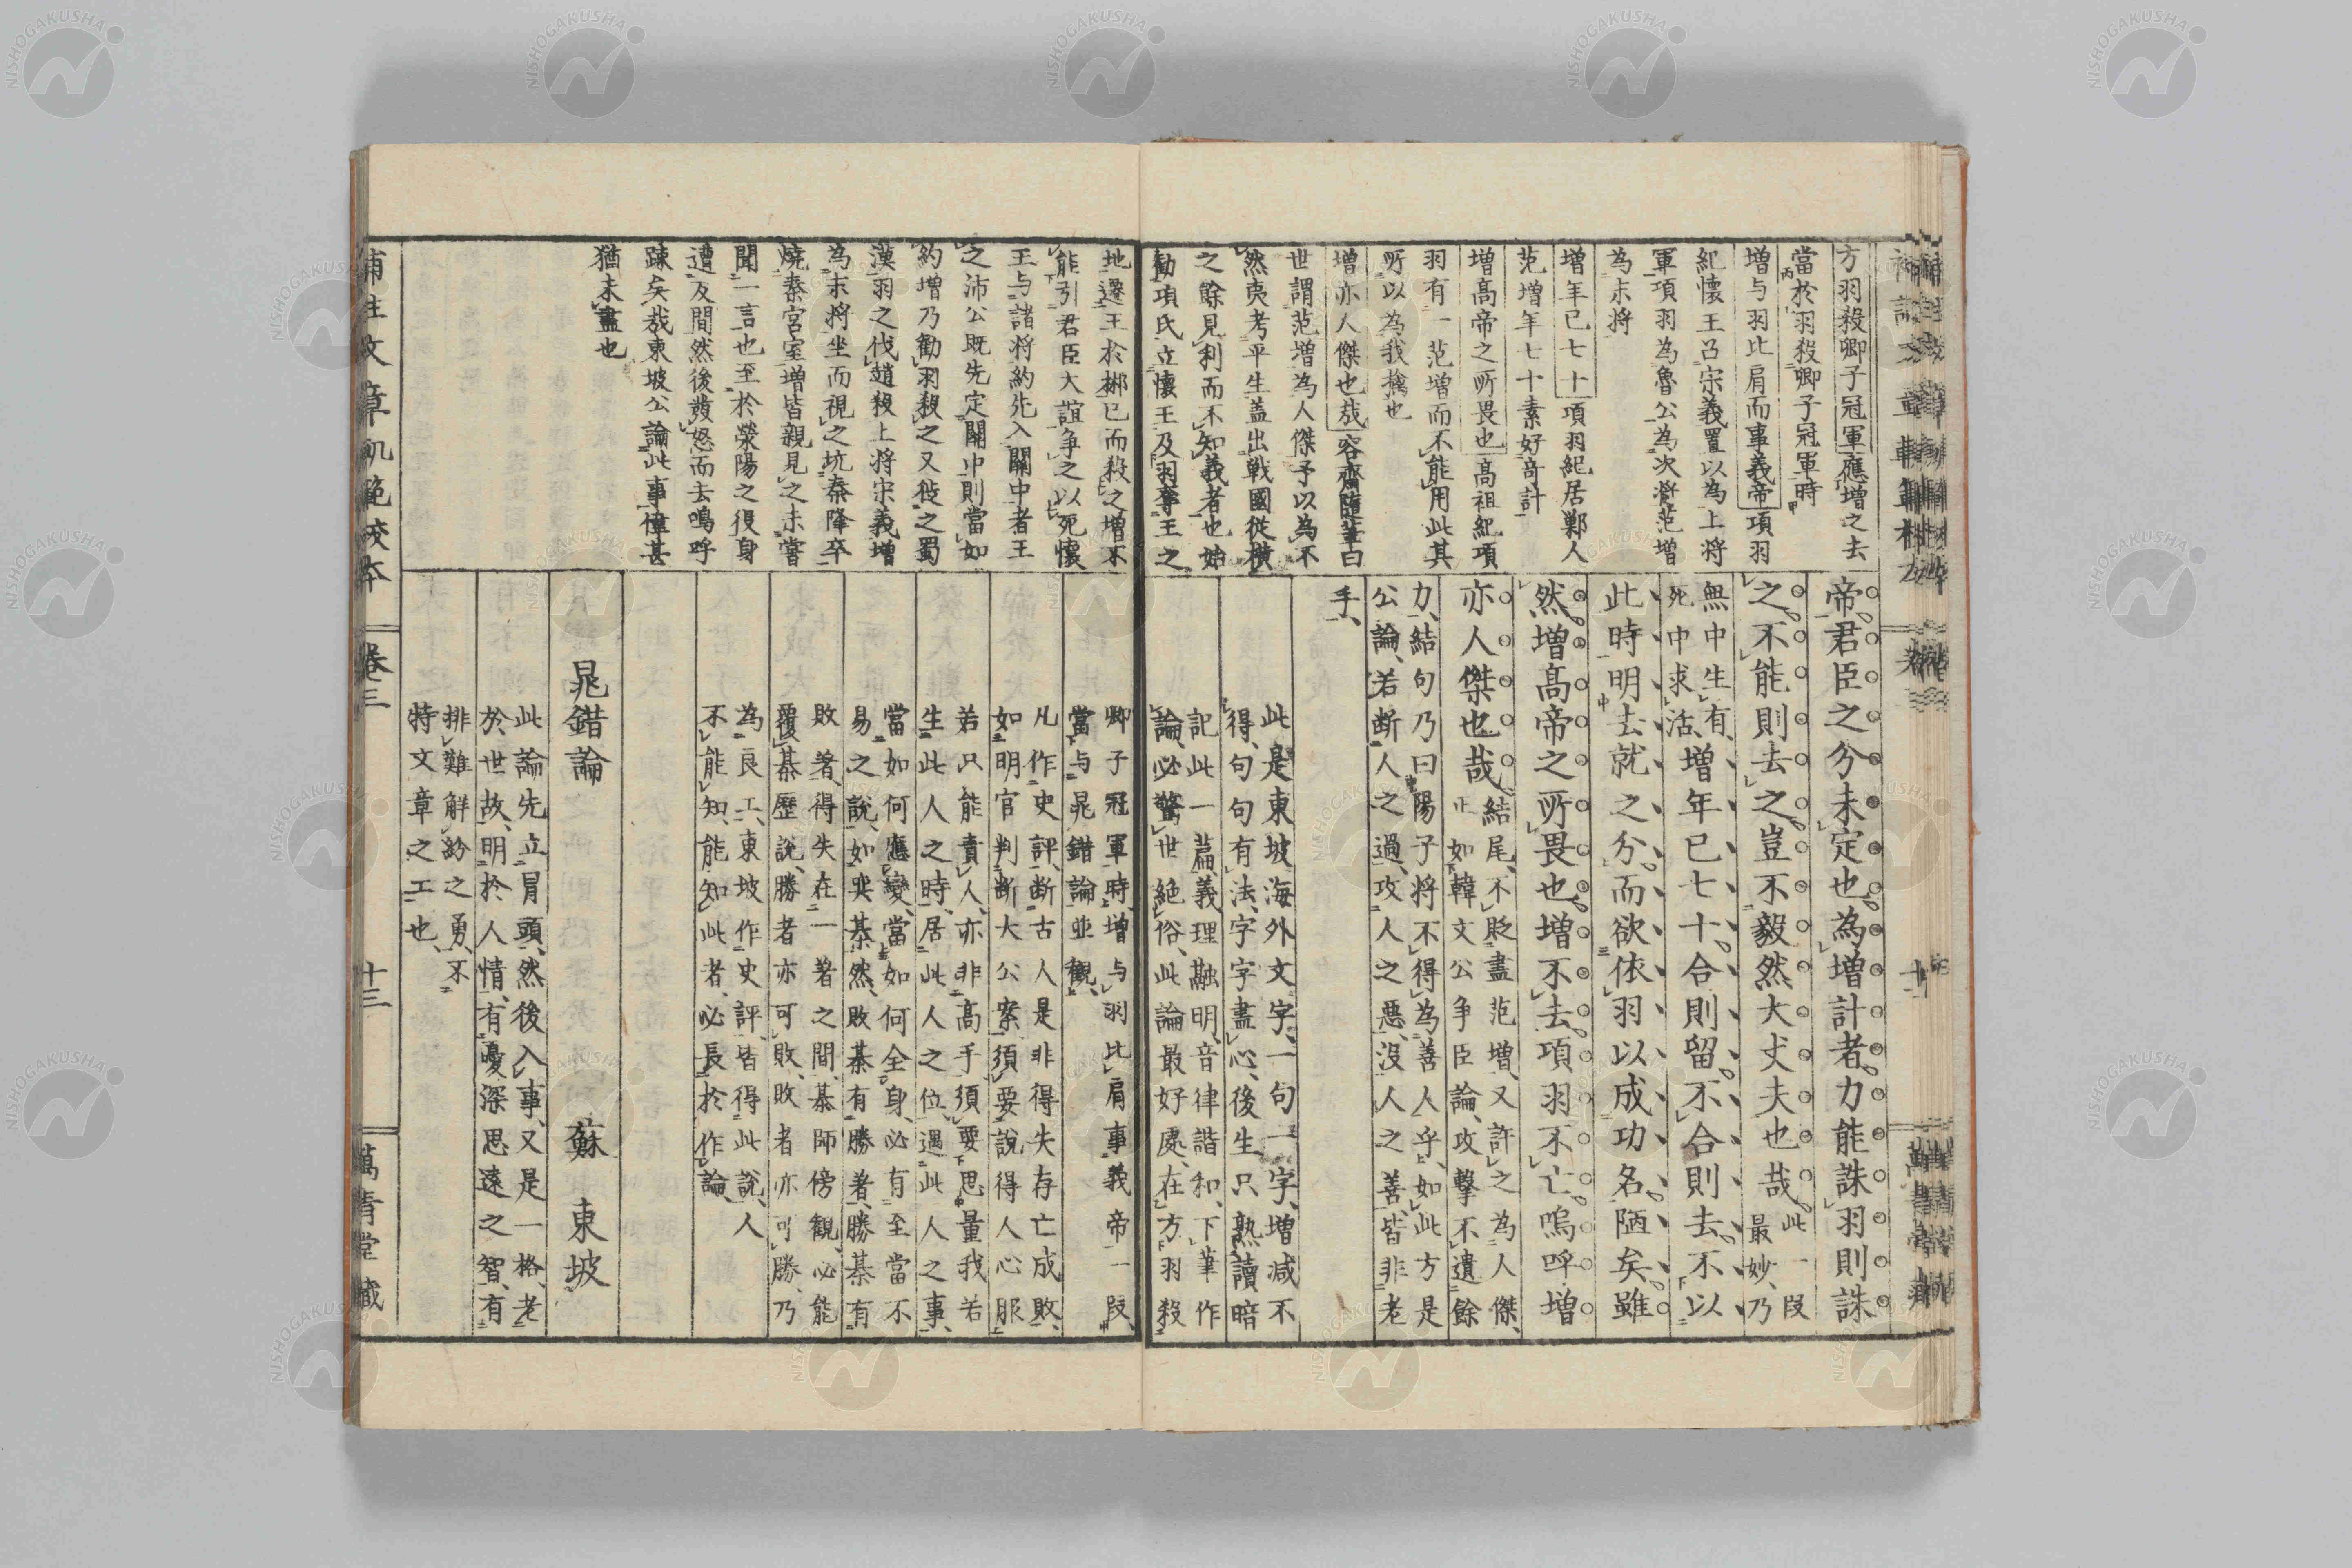 方羽殺卿子冠軍應增之去
當於羽殺卿子冠軍時
增与羽比肩而事義帝項羽
紀懷王召宋義置以為上將
軍項羽為魯公為次將范增
為末將
增年已七十項羽紀居鄛人
范增年七十素好奇計
增高帝之所畏也高祖紀項
羽有一范增而不能用此其
所以為我擒也
增亦人傑也哉容齋隨筆曰
世謂范增為人傑予以為不
然夷考平生蓋出戰國從橫
之餘見利而不知義者也始
勸項氏立懷王及羽奪王之
帝君臣之分未定也為增計者力能誅羽則誅
之不能則去之豈不毅然大丈夫也哉此一段
最妙乃
無中生有
死中求活增年已七十合則留不合則去不以
此時明去就之分而欲依羽以成功名陋矣雖
然增高帝之所畏也增不去項羽不亡嗚呼增
亦人傑也哉結尾不貶盡范增又許之為人傑
正如韓文公爭臣論攻擊不遺餘
力結句乃曰陽子將不得為善人乎如此方是
公論若斷人之過攻人之惡沒人之善皆非老
手
此是東坡海外文字一句一字增減不
得句句有法字字盡心後生只熟讀暗
記此一篇義理融明音律諧和下筆作
論必驚世絕俗此論最好處在方羽殺
地遷王於郴已而殺之增不
能引君臣大誼爭之以死懷
王与諸將約先入關中者王
之沛公既先定關中則當如
約增乃勸羽殺之又徙之蜀
漢羽之伐趙殺上將宋義增
為末將坐而視之坑秦降卒
燒秦宮室增皆親見之未嘗
聞一言也至於滎陽之役身
遭反間然後發怒而去嗚呼
疎矣哉東坡公論此事偉甚
猶未盡也
卿子冠軍時增与羽比肩事義帝一段
當与晁錯論並觀
凡作史評斷古人是非得失存亡成敗
如明官判斷大公案須要說得人心服
若只能責人亦非高手須要思量我若
生此人之時居此人之位遇此人之事
當如何應變當如何全身必有至當不
易之說如奕棊然敗棊有勝著勝棊有
敗著得失在一著之間棊師傍觀必能
覆棊歷說勝者亦可敗敗者亦可勝乃
為良工東坡作史評皆得此說人
不能知能知此者必長於作論
晁錯論　蘇東坡
此論先立冒頭然後入事又是一格老
於世故明於人情有憂深思遠之智有
排難解紛之勇不
特文章之工也
補註文章軌範校本　卷三　十三　萬青堂藏
NISHOGAKUSHA